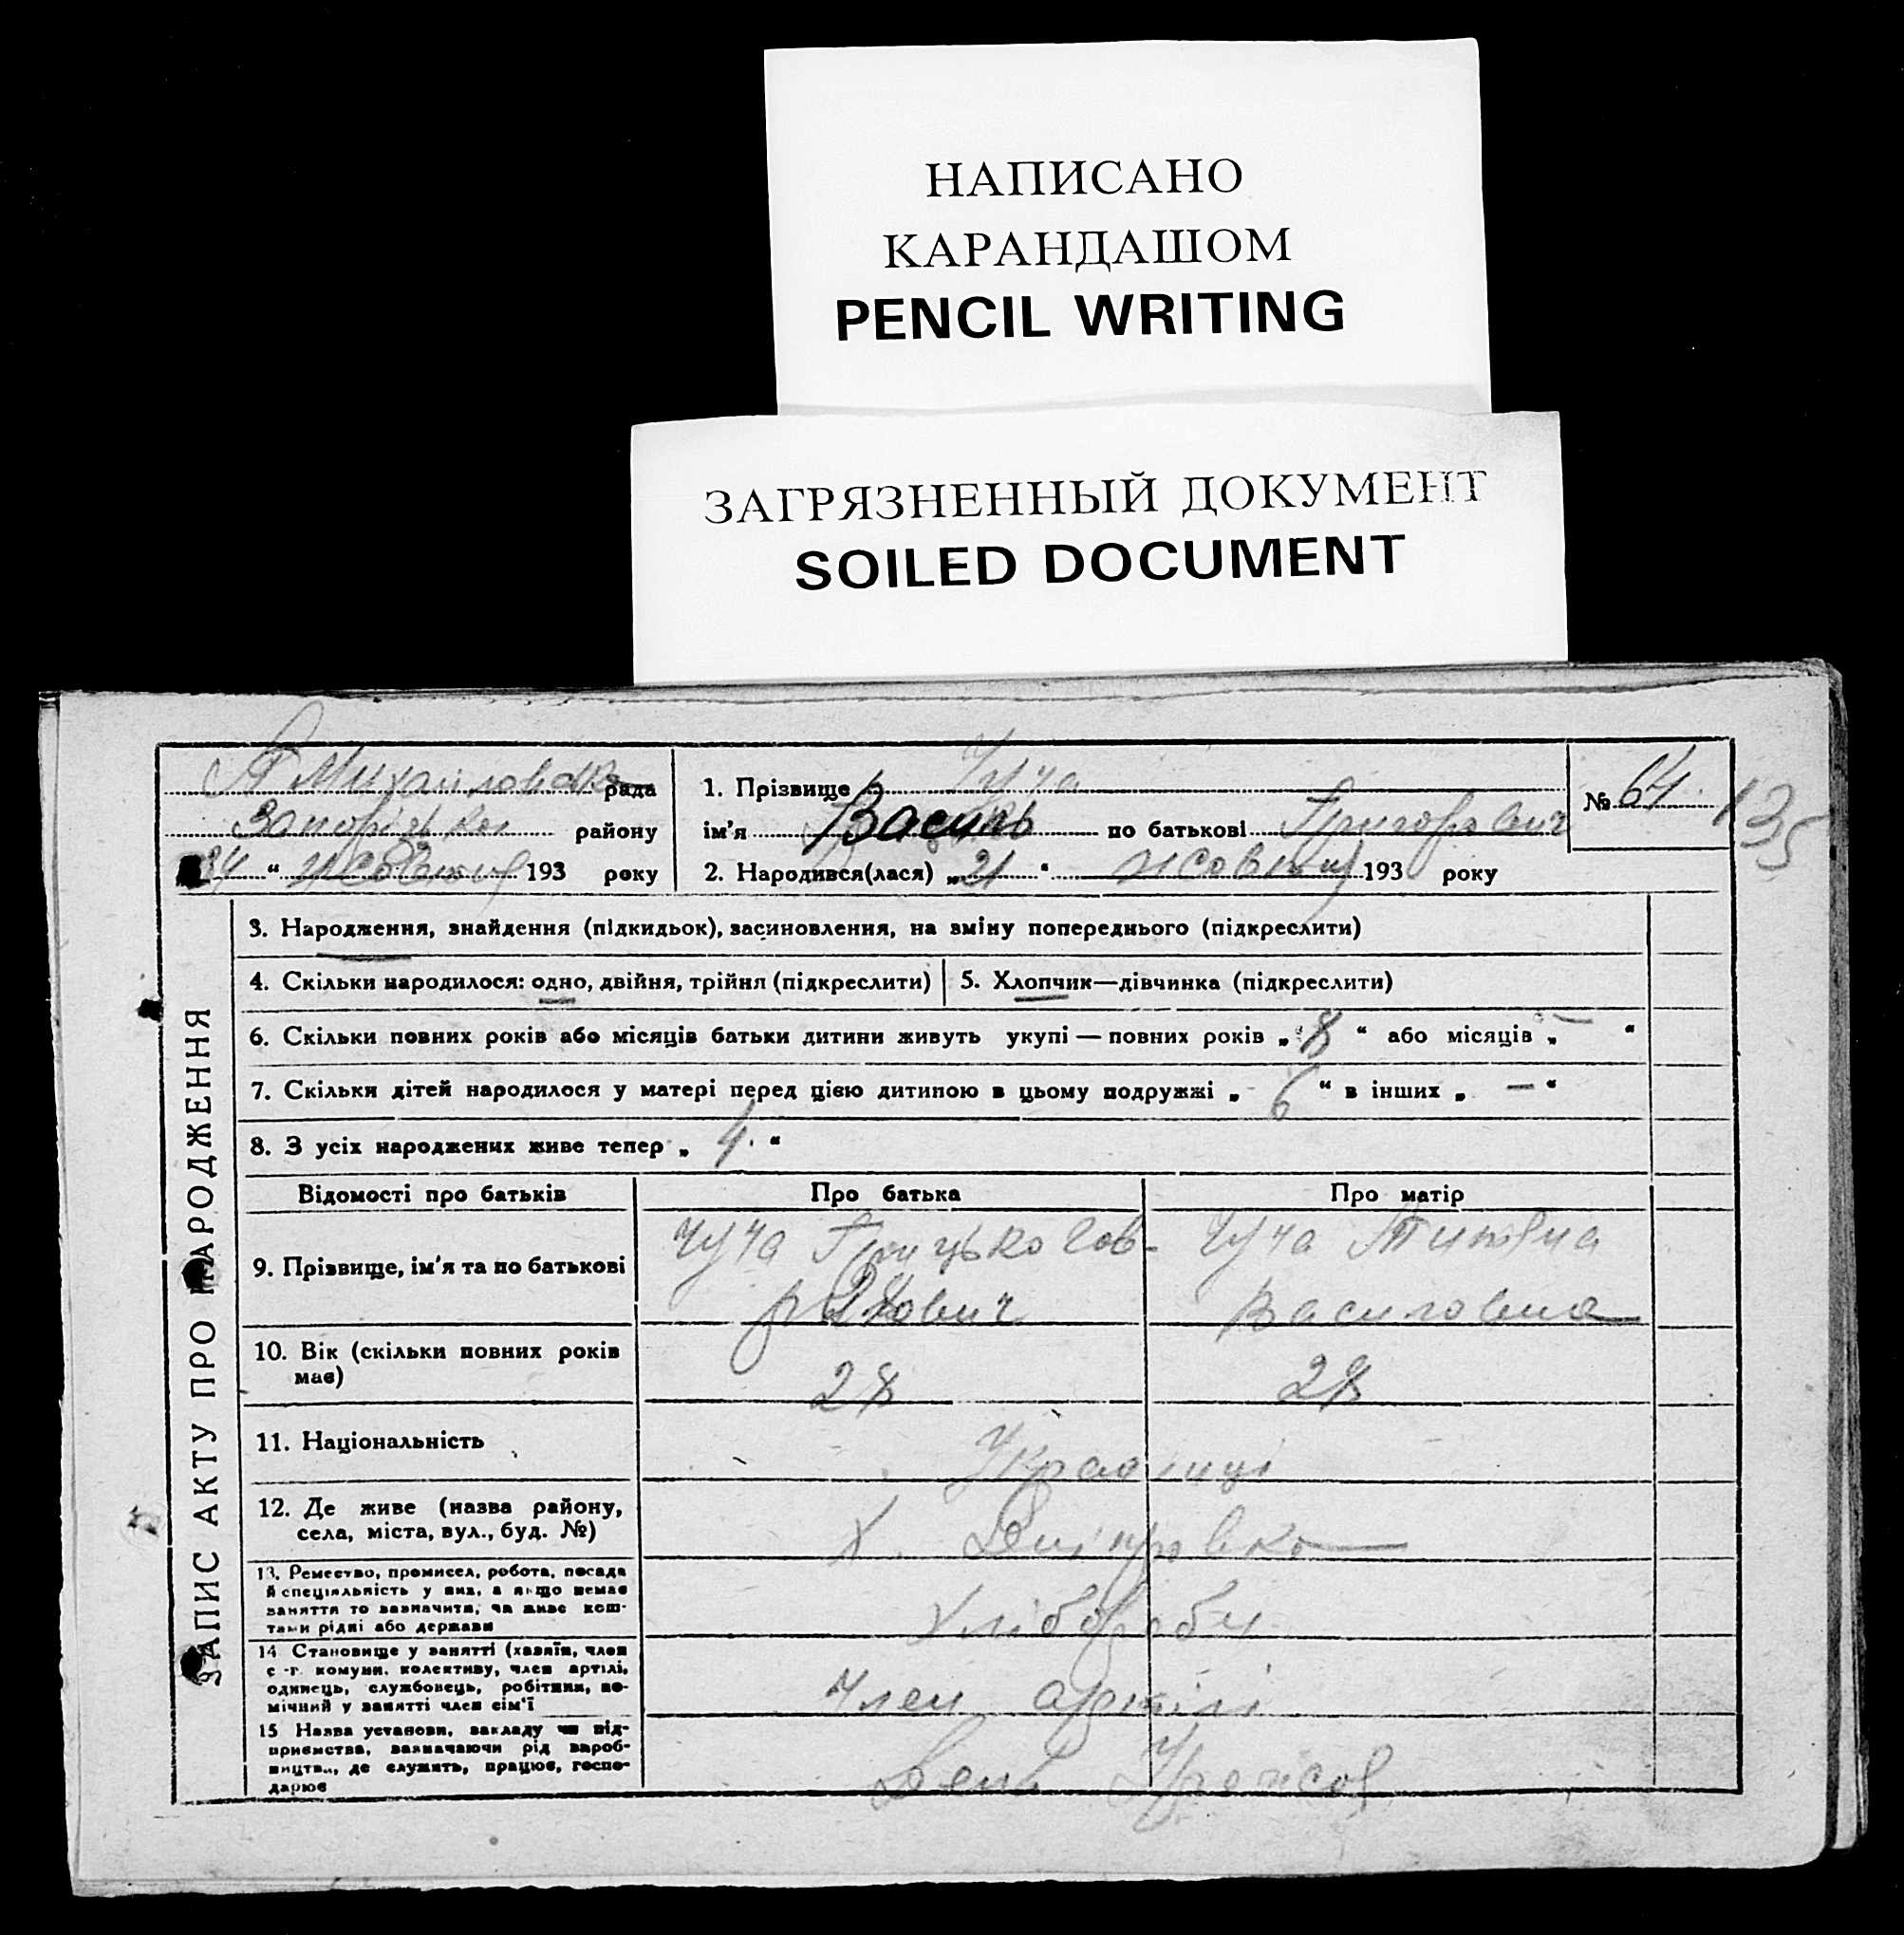 НАПИСАНО
КАРАНДАШОМ
PENCIL WRITING
ЗАГРЯЗНЕННЫЙ ДОКУМЕНТ
SOILED DOCUMENT
рада
Запорізької району
24 " жовтня 193 року
1. Прізвище Чуча
ім'я Василь по батькові Григорович
2. Народився(лася) „21 " жовтня 193 року
№ 64
135
ЗАПИС АКТУ ПРО НАРОДЖЕННЯ
3. Народження, знайдення (підкидьок), засиновлення, на зміну попереднього (підкреслити)
4. Скільки народилося: одно, двійня, трійня (підкреслити)
5. Хлопчик—дівчинка (підкреслити)
6. Скільки повних років або місяців батьки дитини живуть укупі — повних років „ 8 " або місяців „ — "
7. Скільки дітей народилося у матері перед цією дитиною в цьому подружжі „ 6 " в інших „ — "
8. З усіх народжених живе тепер „ 4. "
Відомості про батьків
Про батька
Про матір
9. Прізвище, ім'я та по батькові
Чуча Грицько
Чуча
Василовна
10. Вік (скільки повних років
має)
28
28
11. Національність
Українці
12. Де живе (назва району,
села, міста, вул., буд. №)
Х. Дніпровка
13. Ремество, промисел, робота, посада
й спеціяльність у них, а якщо немає
заняття то зазначити, чи живе кош-
тами рідні або держави
Хлібороби
14 Становище у занятті (хазяїн, член
с-г. комуни, колективу, член артілі,
одинець, службовець, робітник, по-
мічний у занятті член сім'ї
Член артілі
15 Назва установи, закладу чи під-
приємства, зазначаючи рід вироб-
ництва, де служить, працює, госпо-
дарює